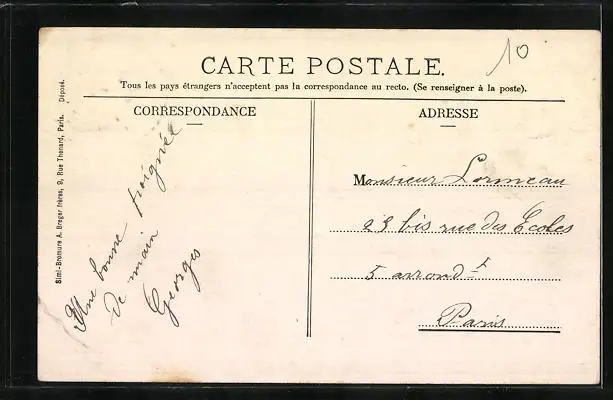 10
CARTE POSTALE.
Tous les pays étrangers n'acceptent pas la correspondance au recto. (Se renseigner à la poste).
CORRESPONDANCE
Une bonne poignée
de main
Georges
ADRESSE
Monsieur Lormeau
23 bis rue des Ecoles
5 arrond t
Paris
Simi-Bromure A. Breger frères, 9, Rue Thenard, Paris. Déposé.